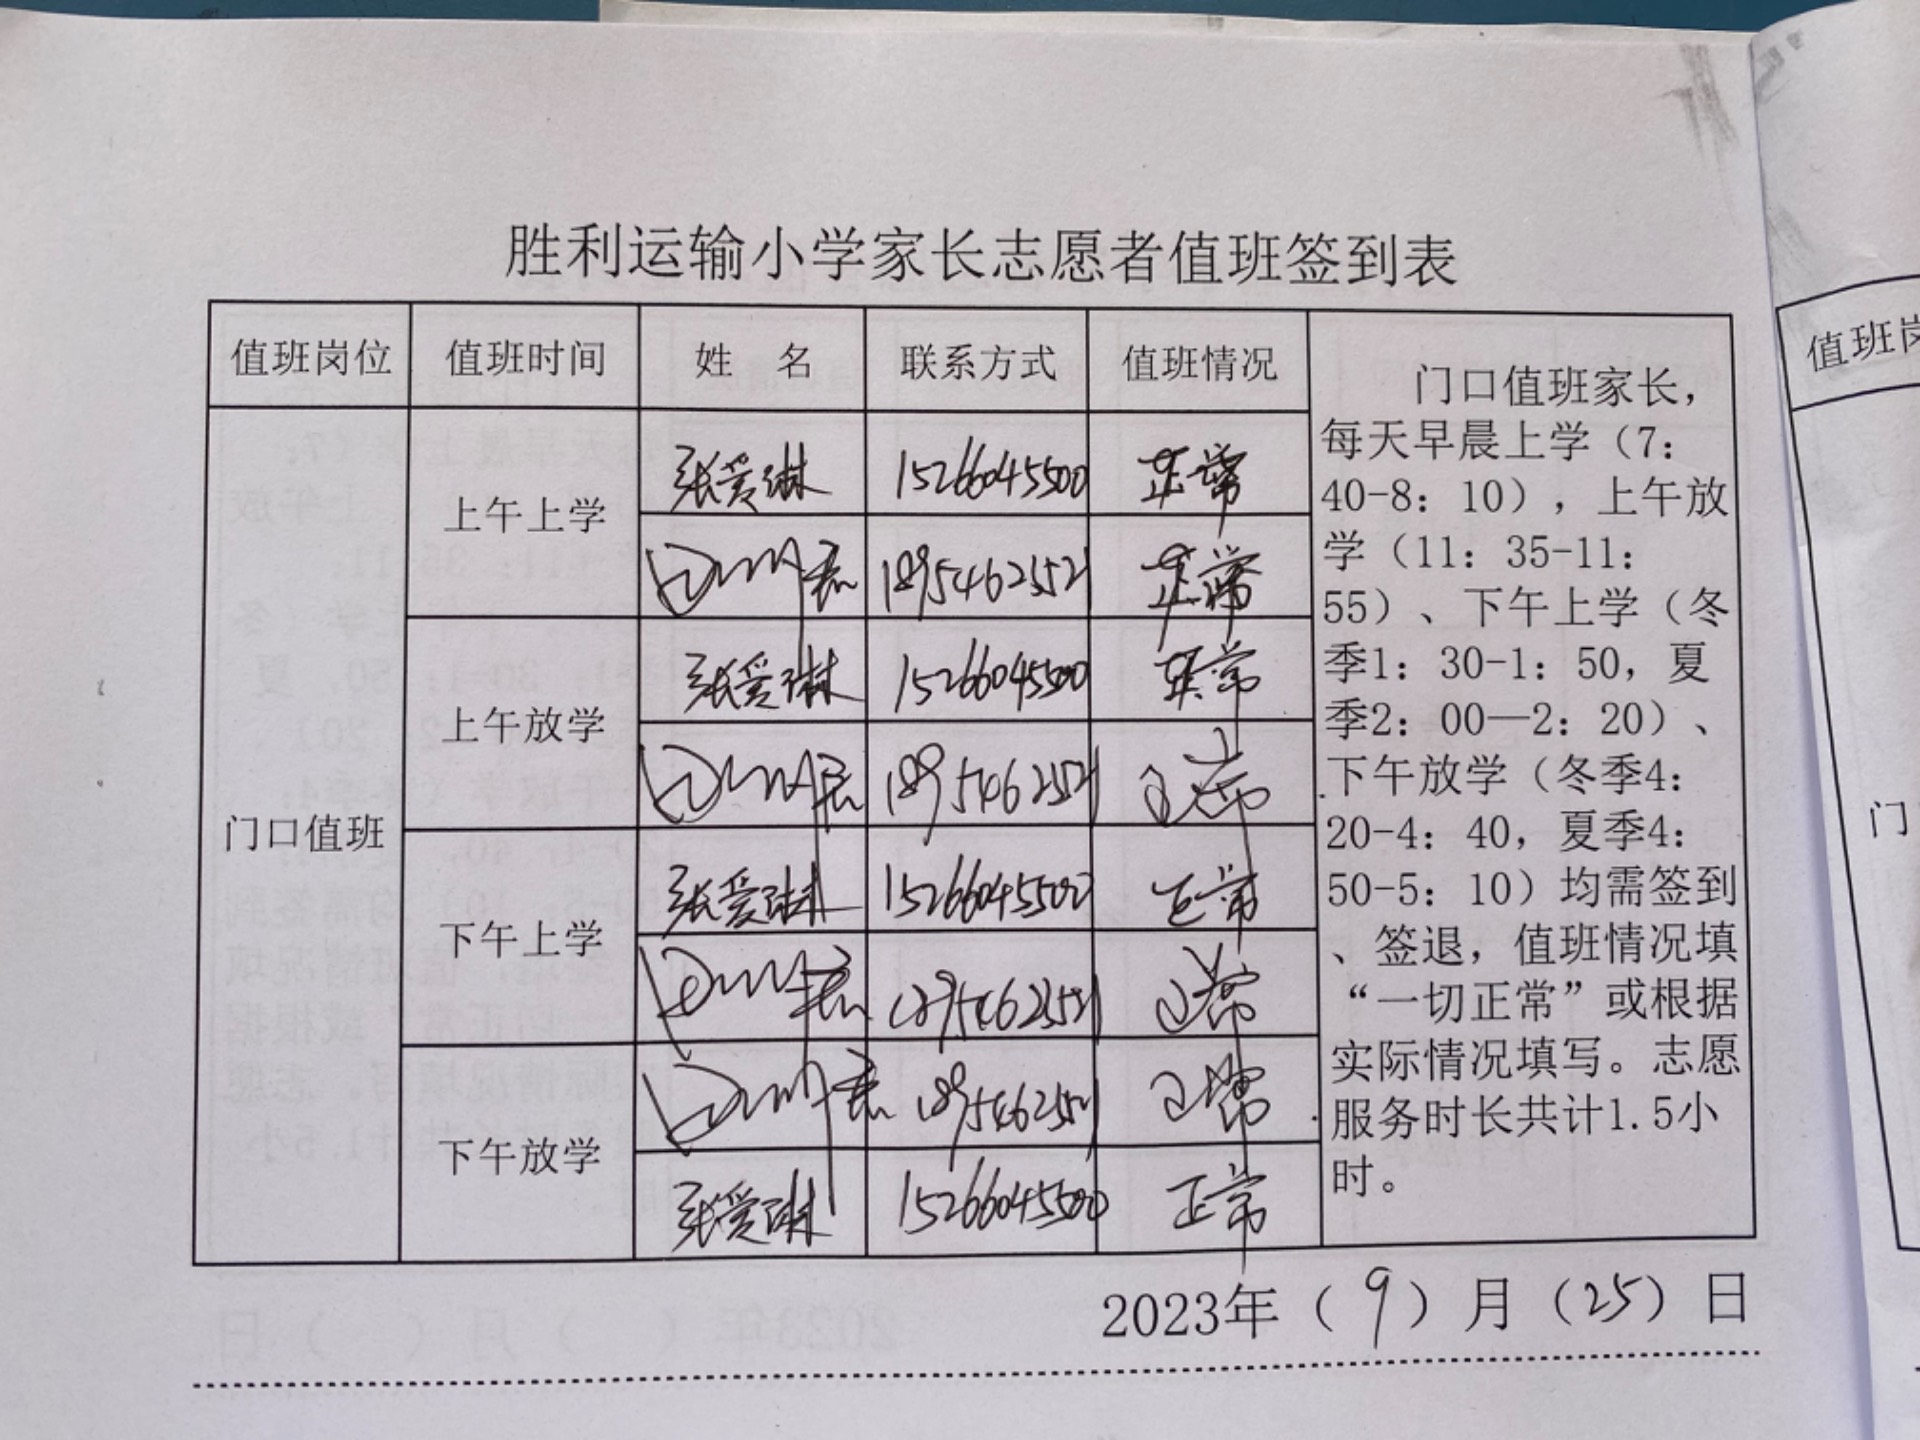 胜利运输小学家长志愿者值班签到表
值班岗位 值班时间 姓 名 联系方式 值班情况
门口值班家长，
每天早晨上学（7：
40-8：10），上午放
学（11：35-11：
55）、下午上学（冬
季1：30-1：50，夏
季2：00—2：20）、
下午放学（冬季4：
20-4：40，夏季4：
50-5：10）均需签到
、签退，值班情况填
“一切正常”或根据
实际情况填写。志愿
服务时长共计1.5小
时。
门口值班
上午上学
张爱琳 15266045500 正常
18954625521 正常
上午放学
张爱琳 15266045500 正常
正常
下午上学
张爱琳 15266045500 正常
正常
下午放学
正常
张爱琳 15266045500 正常
2023年（9）月（25）日
值班岗
门